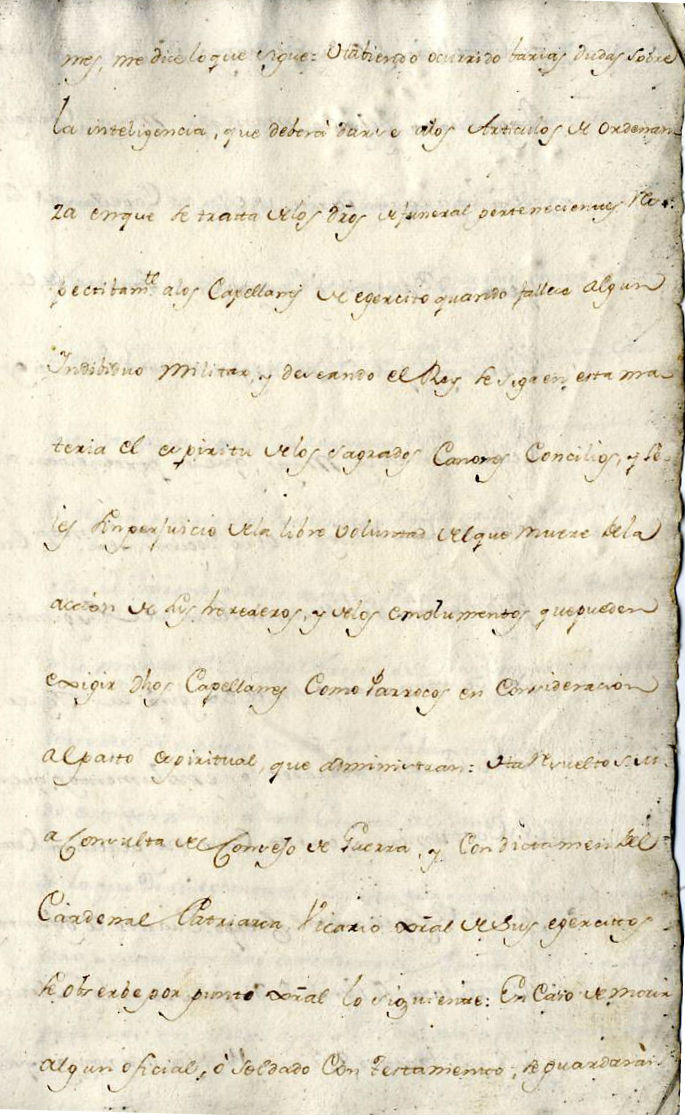 mes, me dice lo que sigue: Habiendo ocurrido barias dudas sobre
la inteligencia, que deberà darse alos Articulos de Ordenan-
za enque se tratta delos dr̃os de funeral pertenecientes res-
pectibam.te alos Capellanes de egercito quando fallece algun
Indibiduo Militar, y deseando el Rey, se siga en esta ma-
teria el espiritu delos sagrados Canones Concilios, y Le-
ies sin perjuicio dela libre voluntad del que muere dela
acción de sus herederos, y delos emolumentos que pueden
exigir dhos Capellanes Como Parrocos en Consideracion
al pasto espiritual, que administran: Ha resuelto S.M.
a Consulta del Consejo de Guerra, y Con dictamen del
Cardenal Patriarca Vicario gr̃al de sus egercitos
se obserbe por punto gr̃al lo siguiente: En Caso de morir
algun oficial, ò soldado Con Testamento, se guardarà